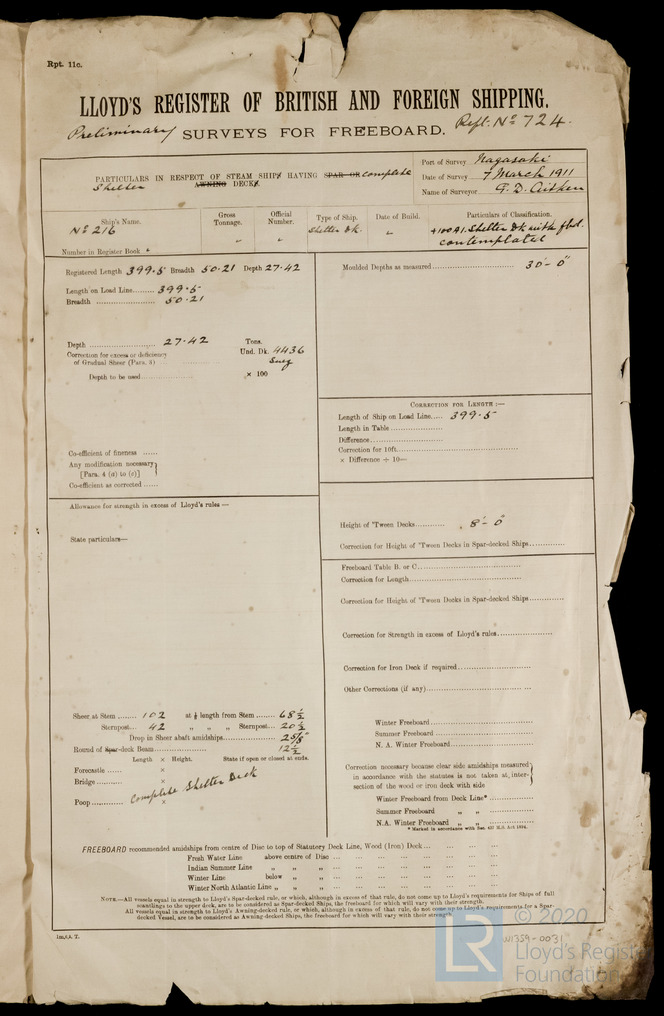 Rpt. 11c.
LLOYD'S REGISTER OF BRITISH AND FOREIGN SHIPPING.
Preliminary SURVEYS FOR FREEBOARD. Rept. No 724.
PARTICULARS IN RESPECT OF STEAM SHIPS HAVING SPAR OR complete
Shelter AWNING DECKS.
Port of Survey Nagasaki
Date of Survey 7 March 1911
Name of Surveyor G. D. Aitken
Ship's Name. Gross Tonnage. Official Number. Type of Ship. Date of Build. Particulars of Classification.
No 216 " " Shelter Dk. " +100A1. Shelter Dk with fbd.
contemplated
Number in Register Book "
Registered Length 399.5 Breadth 50.21 Depth 27.42
Length on Load Line 399.5
Breadth 50.21
Depth 27.42 Tons.
Correction for excess or deficiency Und. Dk. 4436
of Gradual Sheer (Para. 3) Suez
Depth to be used × 100
Co-efficient of fineness
Any modification necessary
[Para. 4 (d) to (e)]
Co-efficient as corrected
Allowance for strength in excess of Lloyd's rules—
State particulars—
Sheer at Stem 102 at ⅛ length from Stem 68½
Sternpost 42 " " " Sternpost 20½
Drop in Sheer abaft amidships
Round of Spar-deck Beam 12½
Length × Height. State if open or closed at ends.
Forecastle ×
Bridge ×
Complete Shelter Deck
Poop ×
Moulded Depths as measured 30'-0"
CORRECTION FOR LENGTH :—
Length of Ship on Load Line 399.5
Length in Table
Difference
Correction for 10ft.
× Difference ÷ 10—
Height of 'Tween Decks 8'-0"
Correction for Height of 'Tween Decks in Spar-decked Ships
Freeboard Table B. or C.
Correction for Length
Correction for Height of 'Tween Decks in Spar-decked Ships
Correction for Strength in excess of Lloyd's rules
Correction for Iron Deck if required
Other Corrections (if any)
Winter Freeboard
Summer Freeboard
N. A. Winter Freeboard
Correction necessary because clear side amidships measured
in accordance with the statutes is not taken at inter-
section of the wood or iron deck with side
Winter Freeboard from Deck Line*
Summer Freeboard " "
N.A. Winter Freeboard " "
* Marked in accordance with Sec. 437 M.S. Act 1894.
FREEBOARD recommended amidships from centre of Disc to top of Statutory Deck Line, Wood (Iron) Deck
Fresh Water Line above centre of Disc
Indian Summer Line " " "
Winter Line below " "
Winter North Atlantic Line " " "
NOTE.—All vessels equal in strength to Lloyd's Spar-decked rule, or which, although in excess of that rule, do not come up to Lloyd's requirements for Ships of full
scantlings to the upper deck, are to be considered as Spar-decked Ships, the freeboard for which will vary with their strength.
All vessels equal in strength to Lloyd's Awning-decked rule, or which, although in excess of that rule, do not come up to Lloyd's requirements for a Spar-
decked Vessel, are to be considered as Awning-decked Ships, the freeboard for which will vary with their strength.
W1359-0031
LR © 2020
Lloyd's Register
Foundation